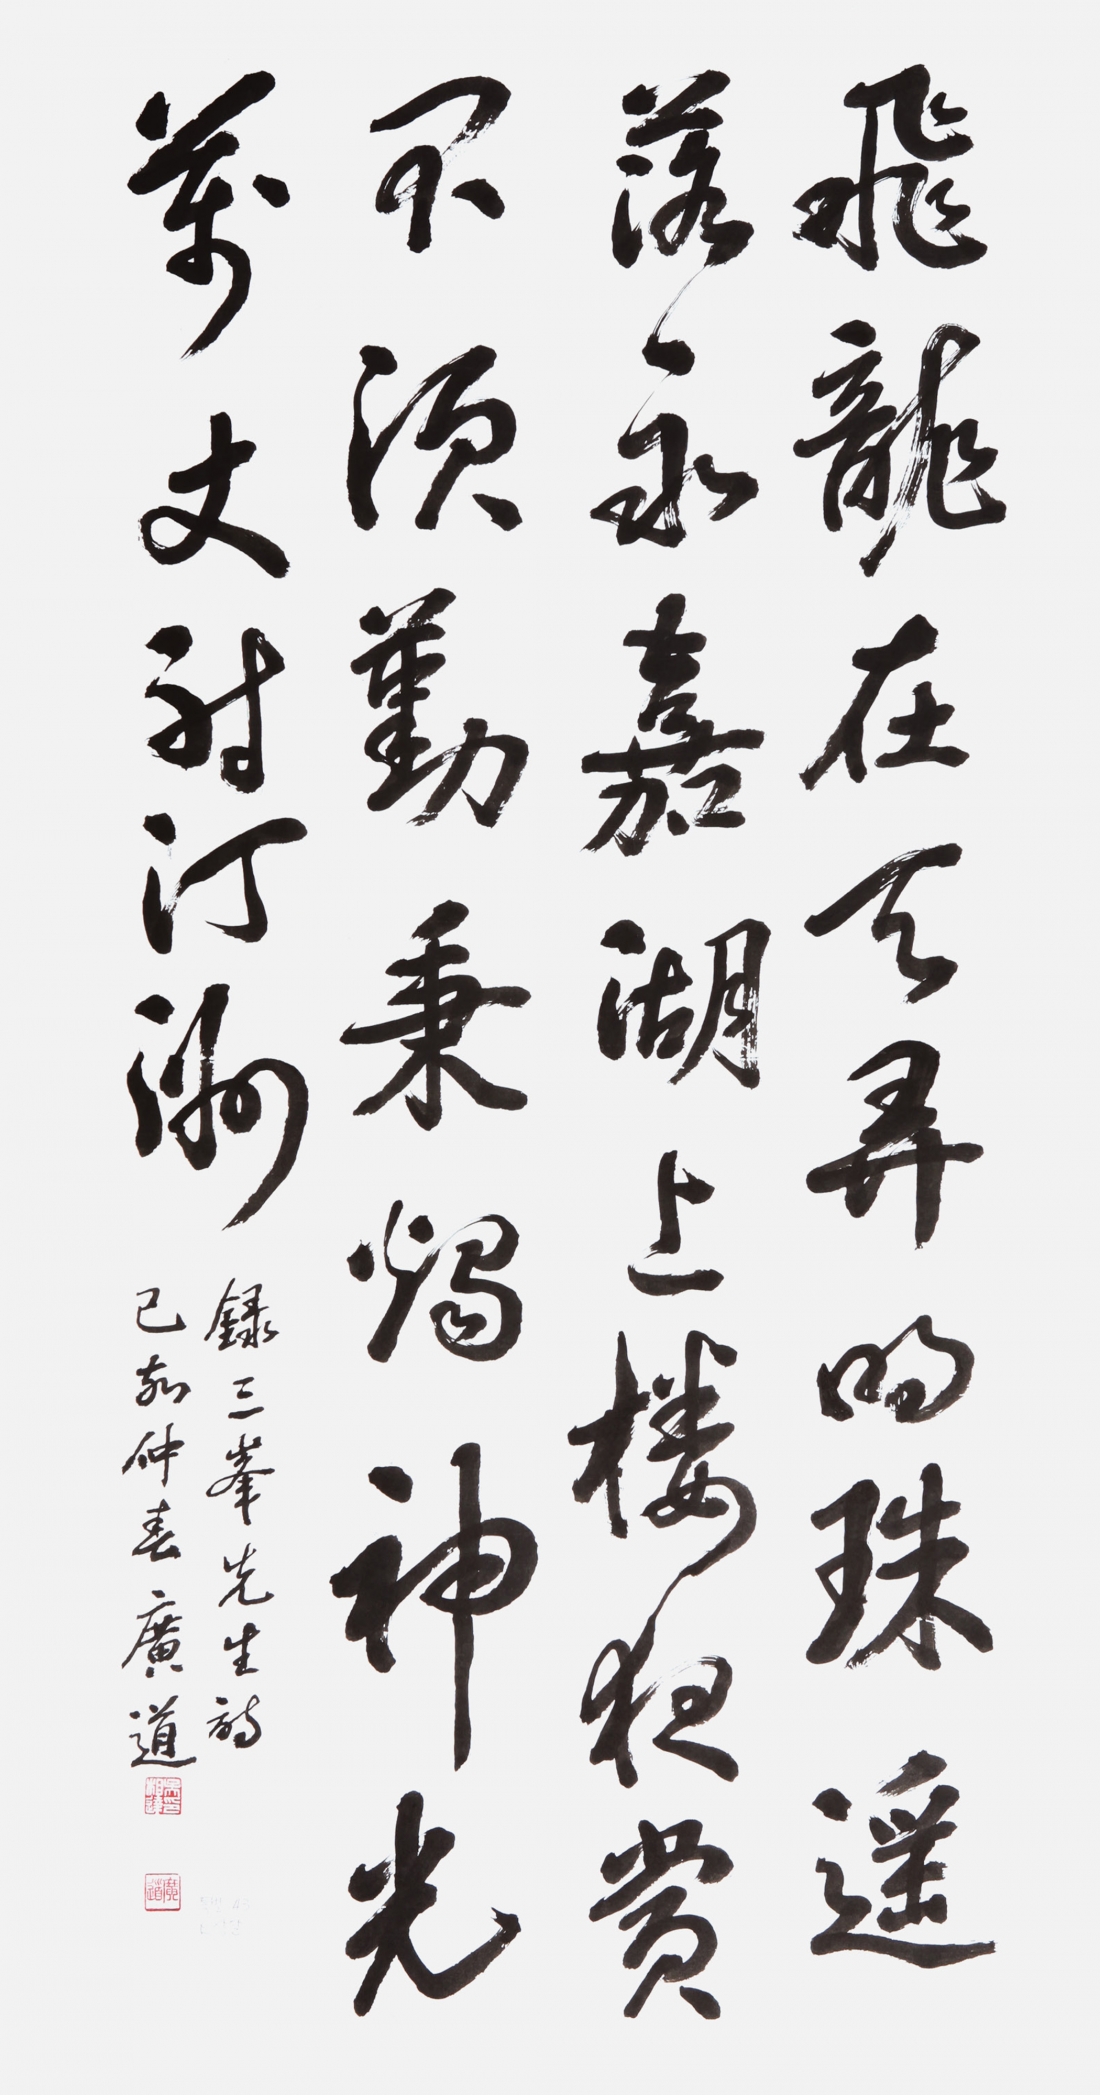 飛龍在天弄明珠遥
落永嘉湖上樓夜賞
不須勤秉燭神光
萬丈射汀洲
錄三峯先生詩
己卯仲春廣道
廣道